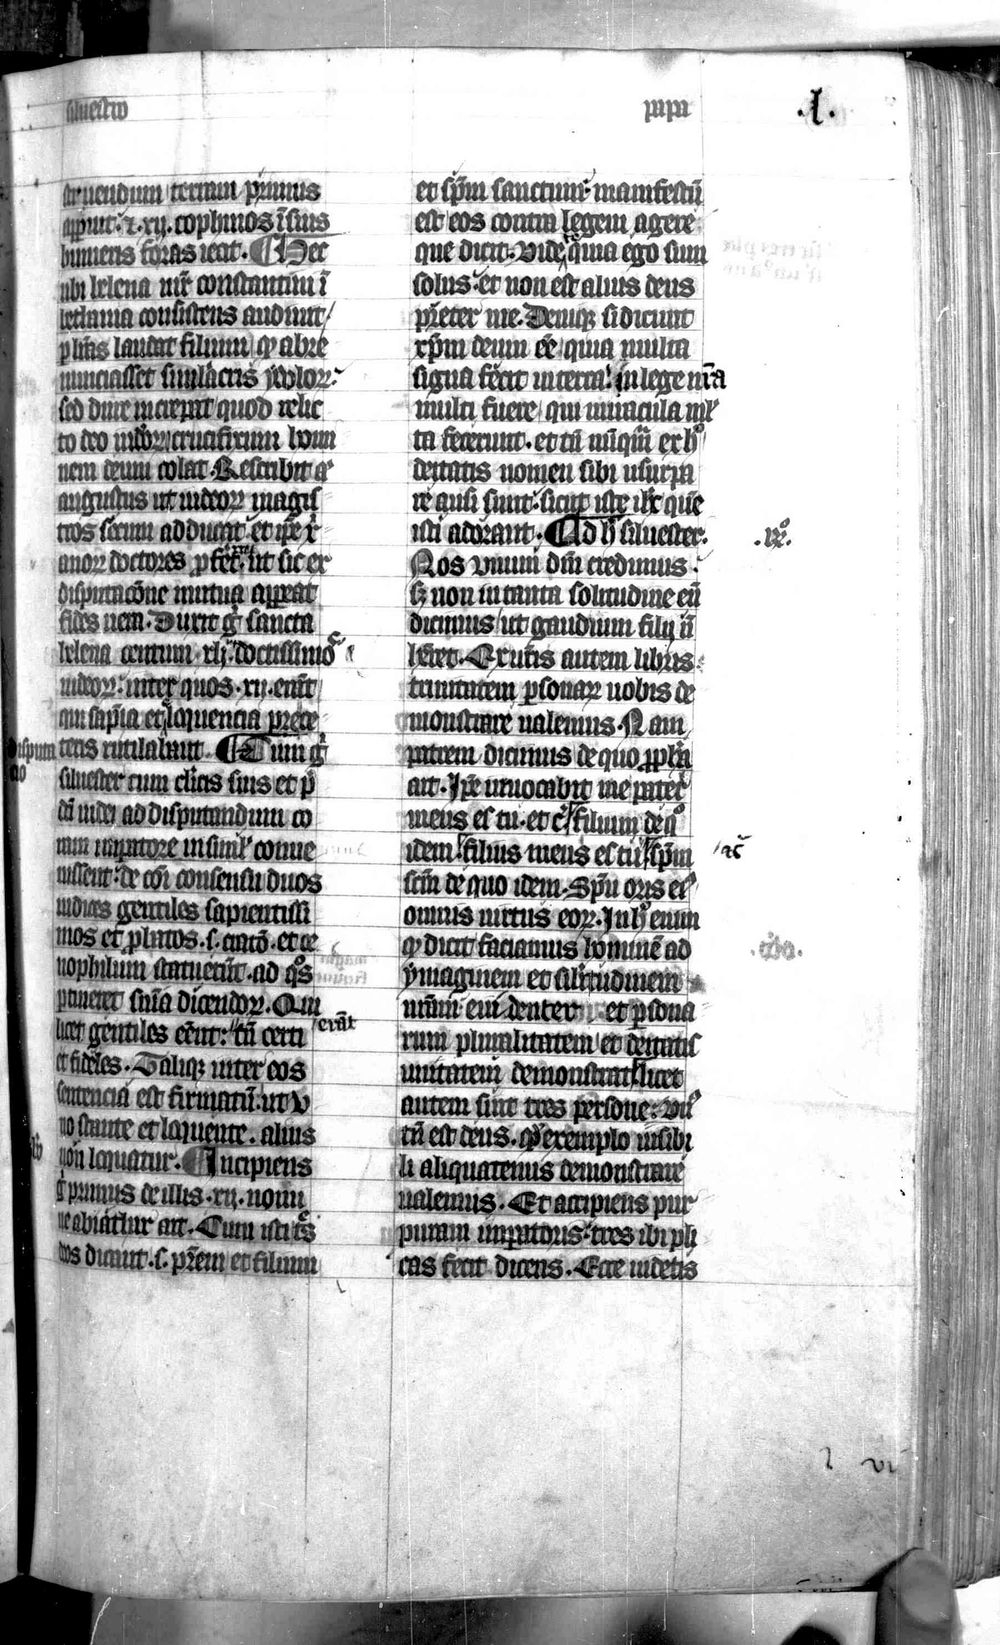 siluestro papa .l.
struendum terram primus
appuit. ⁊. xij. cophinos ī suis
humeris foras iecit. ¶ Hec
ubi helena mr̄ constantini ī
bethania consistens audiuit/
p lrās laudat filium qd abre
nunciasset simulacris ydolorꝝ.
sed dure increpat quod relic
to deo iudeorꝝ crucifixum homi
nem deum colat. Rescribit
augustus ut iudeorꝝ magis
tros secum adducat et ipse
anorꝝ doctores ut sic ex
disputacōne mutua appareat
fides uera. Duxit gͦ sancta
helena centum xlj. doctissimos
iudeorꝝ. inter quos .xij. erāt
qui sapīa et eloquencia prece
teris rutilabant. ¶ Cum gͦ
Disputa
tio
siluester cum clicis suis et p̄
dc̄i iudei ad disputandum co
ram impatore insimul conue
nissent. de coī consensu duos
iudices gentiles sapientissi
mos et pbatos .s. cratō. et ce
nophilum statuerūt. ad qͦs
ptineret snīa dicendorꝝ. Qui
licet gentiles eēnt: tn̄ certi erāt
et fideles. Taliqꝫ inter eos
sentencia est firmatū. ut v
no stante et loquente. alius
non loquatur. ¶ Incipiens
gͦ primus de illis .xij. nomi
ne abiathar ait. Cum isti
deos dicant .s. pr̄em et filium
et spm̄ sanctum: manifestū
est eos contra legem agere
que dicit. Videte quia ego sum
solus. et non est alius deus
preter me. Deniqꝫ si dicunt
xpm̄ deum eē quia multa
signa fecit in terra. in lege nr̄a
multi fuere/ qui miracula ml
ta fecerunt. et tn̄ nūqm̄ ex hͦ
deitatis nomen sibi usurpa
re ausi sunt. sicut iste ihc que
isti adorant. ¶ Ad hͦ siluester. .rͦ.
Nos vnum dm̄ credimus.
sꝫ non in tanta solitudine eū
dicimus ut gaudium filij nͦ
habet. Ex uestris autem libris
trinitatem psonarꝝ uobis de
monstrare ualemus. Nam
patrem dicimus de quo ppheta
ait. Ipse inuocabit me pater
meus es tu. et c̄. filium de qͦ
idem. filius meus es tu spm̄ /⁊c̄
scm̄ de quo idem. Spū oris eiꝰ
omnis uirtus eorꝝ. In hͦ enim
qd dicit faciamus hominē ad
ymaginem et similitudinem
nr̄am eui denter et psona
rum pluralitatem et deitatis
unitatem demonstrat. licet
autem sint tres persone. vnꝰ
tn̄ est deus. qd exemplo uisibi
li aliquatenus demonstrare
ualemus. Et accipiens pur
puram impatoris. tres ibi pli
cas fecit dicens. Ecce uidetis